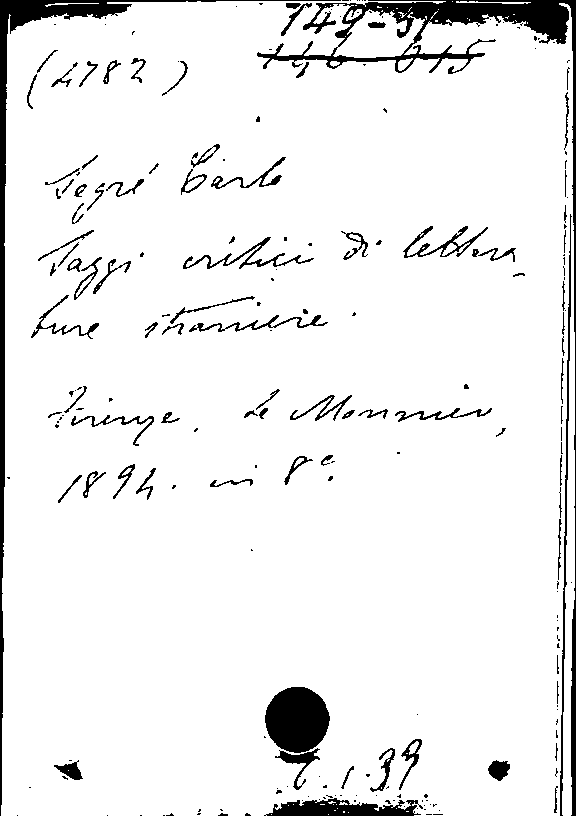 149-51
146-015
(4782)
Segré Carlo
Saggi critici di lettera-
ture straniere.
Firenze, Le Monnier,
1894. in 8º.
6.1.39